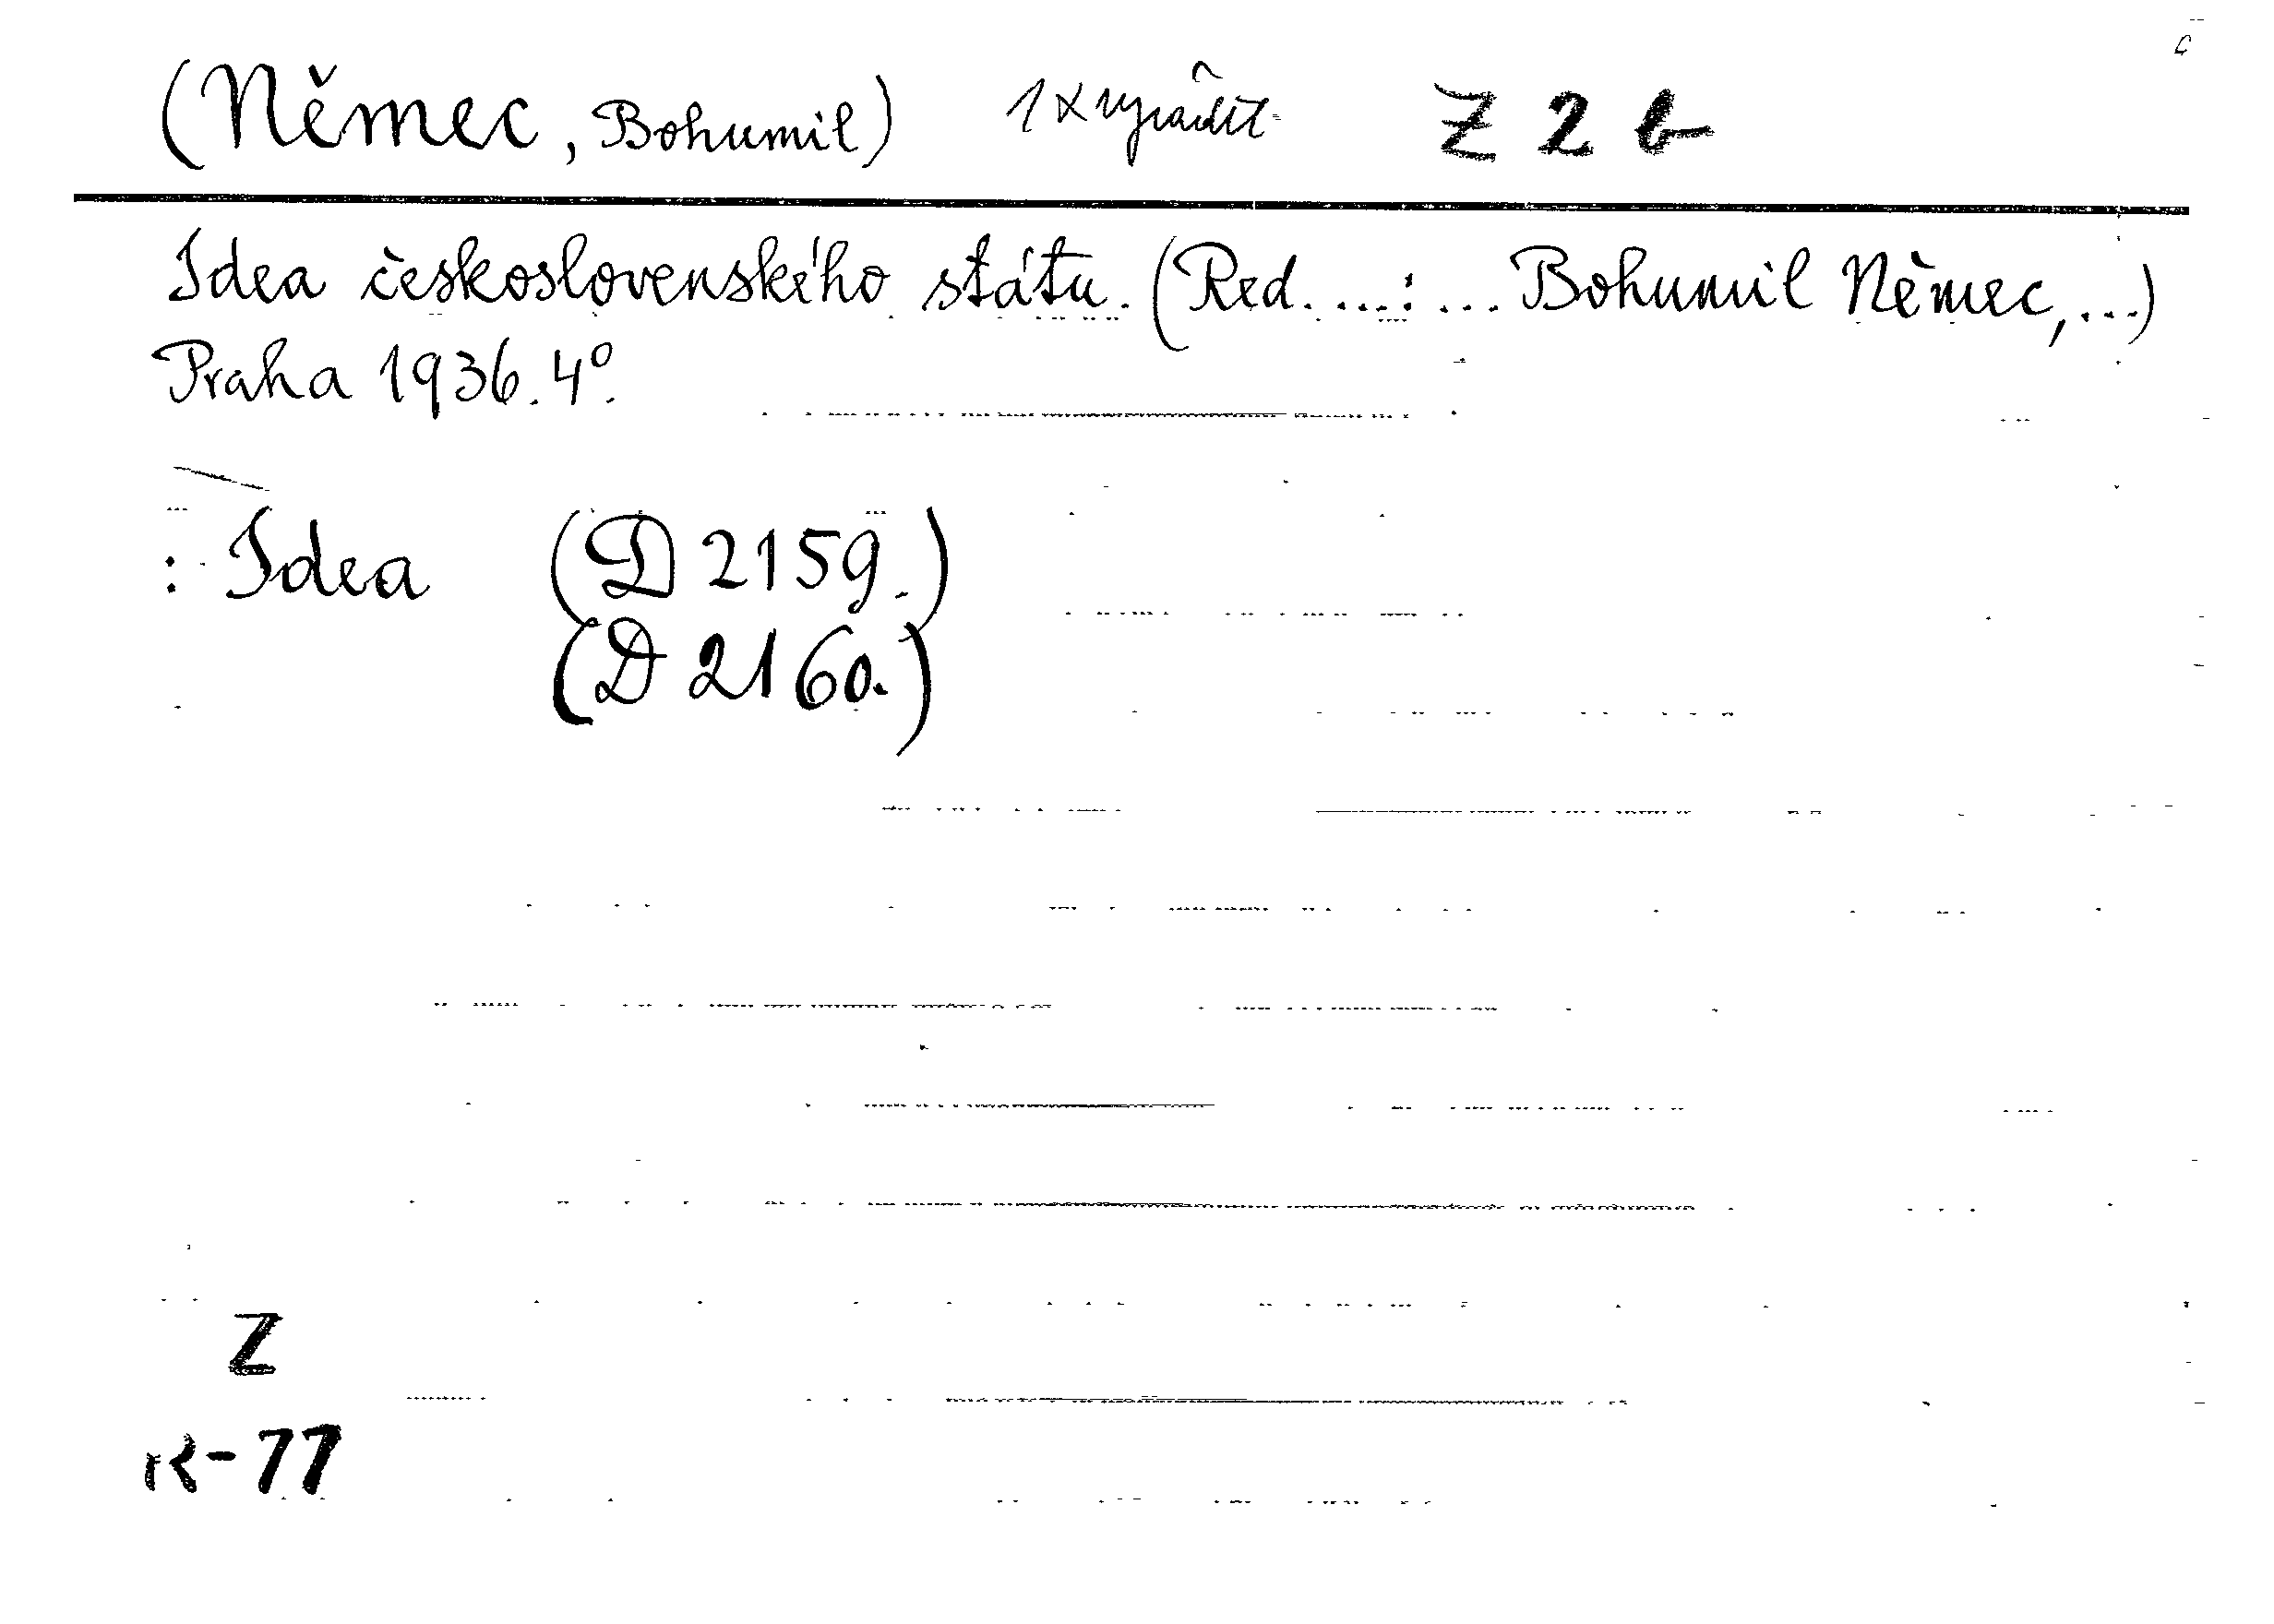 (Němec, Bohumil) 1x vyřadit Z 2 b
Idea československého státu. (Red. ...: ... Bohumil Němec, ...)
Praha 1936. 4°.
: Idea (D 2159.)
(D 2160.)
Z
R-77